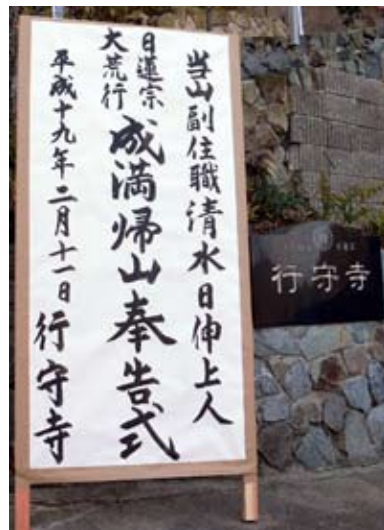 当山副住職清水日伸上人
日蓮宗
大荒行
成満帰山奉告式
平成十九年二月十一日
行守寺
行守寺